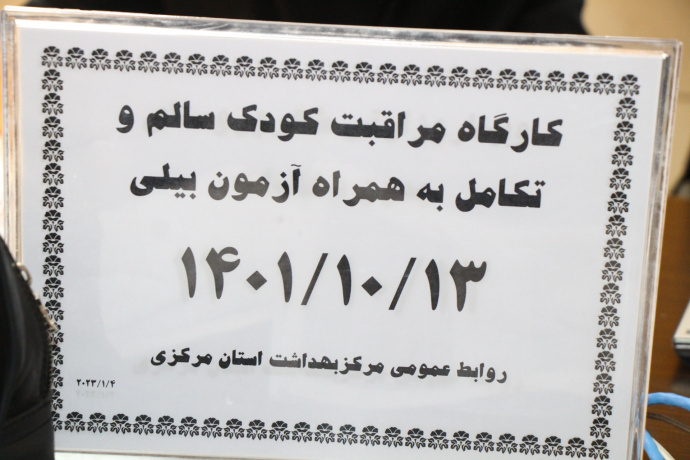 کارگاه مراقبت کودک سالم و
تکامل به همراه آزمون بیلی
۱۴۰۱/۱۰/۱۳
روابط عمومی مرکزبهداشت استان مرکزی
۲۰۲۳/۱/۴